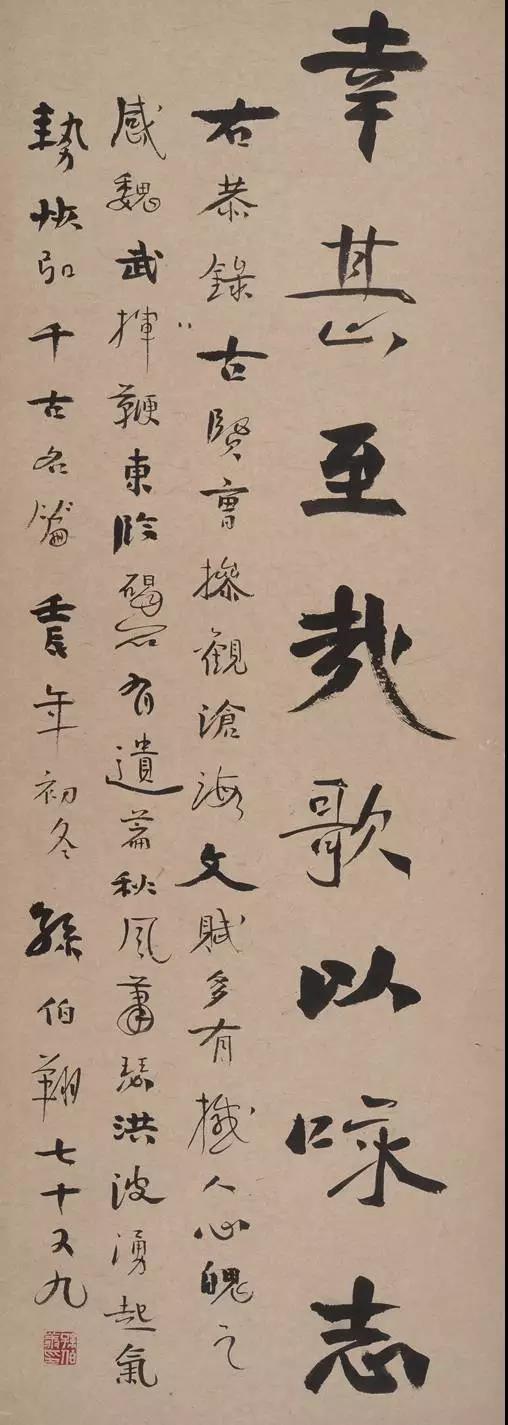 幸甚至哉歌以咏志
右恭錄古賢曹操觀滄海文賦多有撼人心魄之
感魏武揮鞭東臨碣石有遺篇秋風蕭瑟洪波湧起氣
勢恢弘千古名篇 壬辰年初冬 孫伯翔七十又九